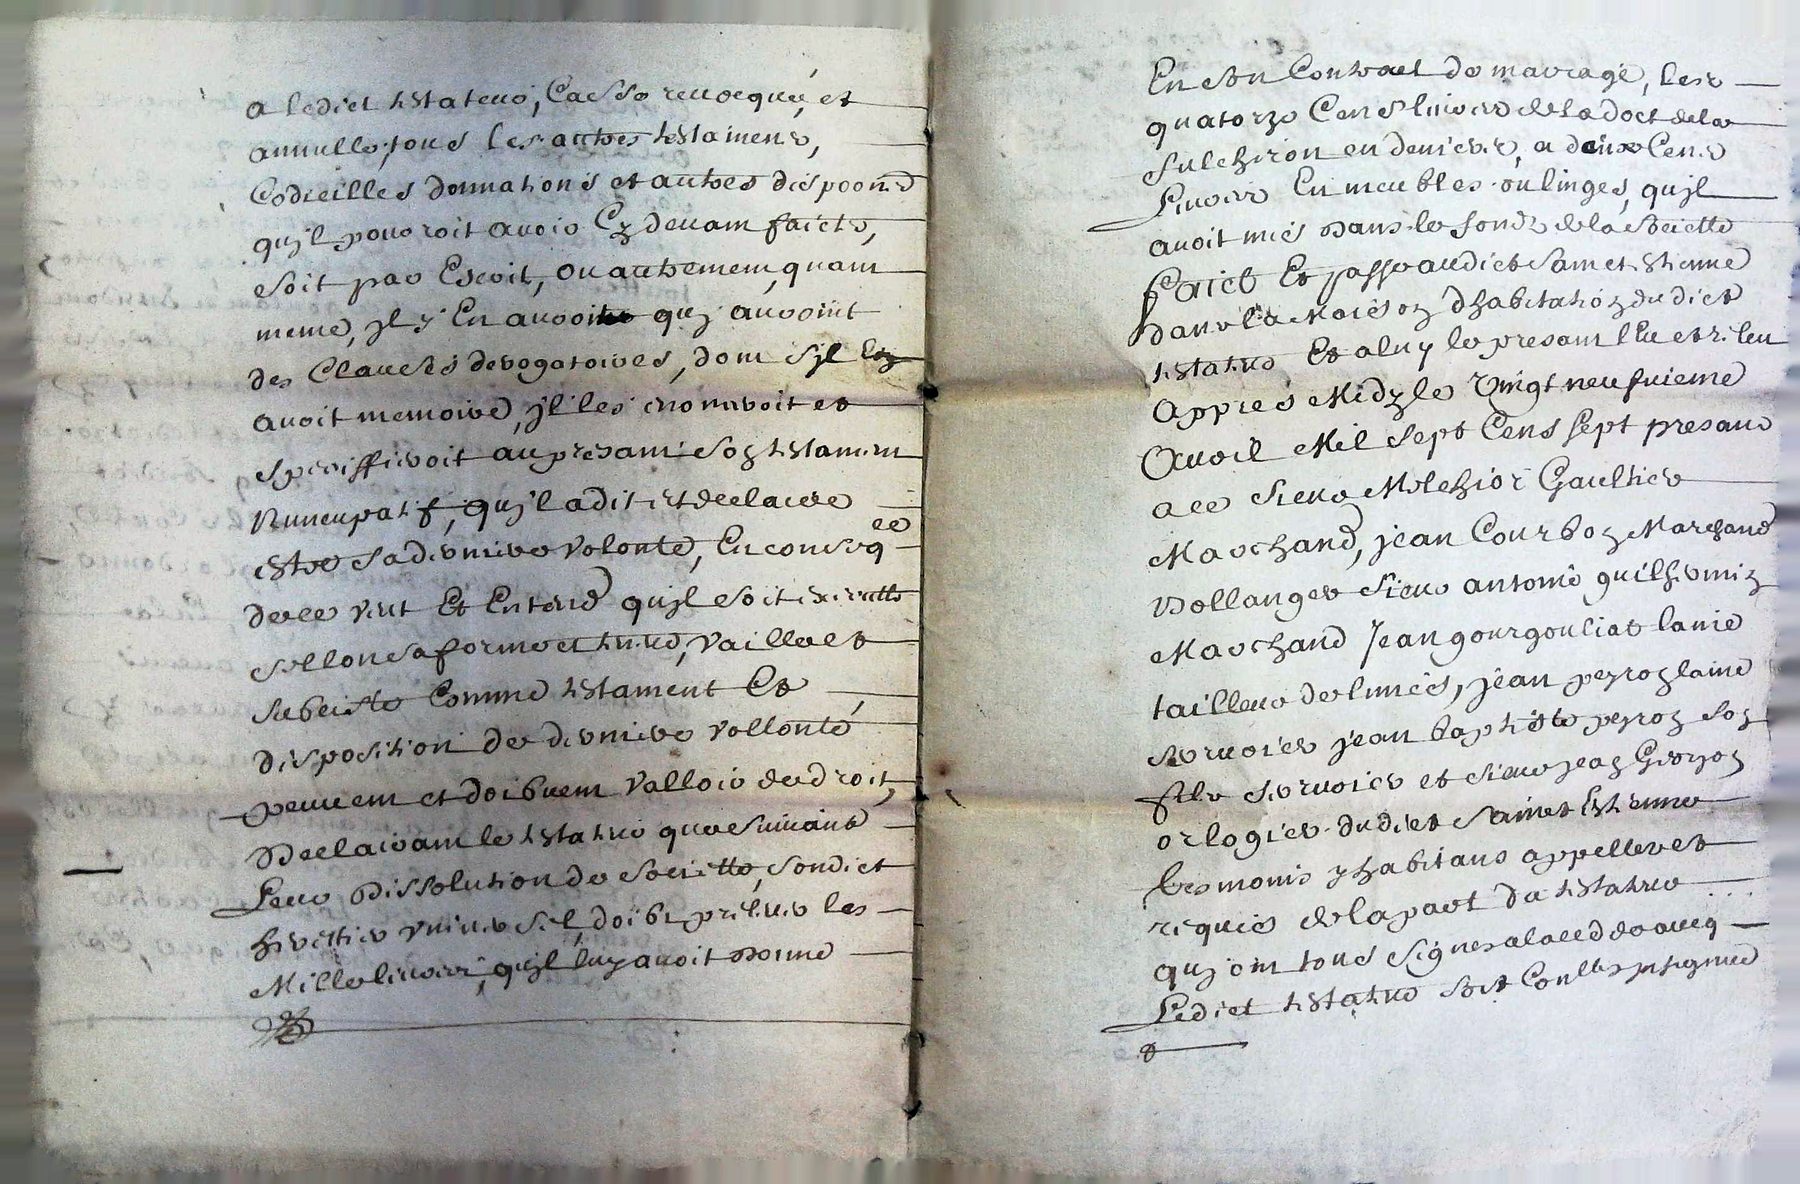 a ledict testateur, Casse revocque, et
annulle, tous les autres testamens,
Codicilles donnations et autres dispoons
quil pourroit avoir Cy devant faicts,
soit par Escrit, ou autrement, quant
meme, jl y En auroit quy auroint
des Clauses derogatoires, dont sil En
avoit memoire, jl les nommeroit et
speciffieroit au presant son testament
Nuncupatif, quil a dit et declaire
estre sa derniere volonte, En conseqce
de ce veut Et Entend quil soit execute
sellon sa forme et teneur, vaille et
subciste Comme testament Et
disposition de derniere vollonté
peuvent et doibvent valloir de droit,
Declairant le testateur que suivant
Leur Dissolution de societte, sondict
heritier universel, doibt prelever les
Mille livres, quil luy avoit donne
En son Contract de mariage, les
quatorze Cens livres de la doct de la
fulchiron en deniers, a deux Cens
Livres En meubles ou linges, quil
avoit mis dans le fonds de la societte
Faict Et passe audict Sainct Estienne
dans la Maison d'habitation du dict
testateur Et a luy le presant lleu et releu
appres Midy le vingt neufvieme
Avril Mil Sept Cens sept presans
a ce sieur Melchior Gaultier
Marchand, jean Courbon Marchand
Bollanger sieur antoine guilhermin
Marchand Jean gourgouliat laine
tailleur de limes, jean peyron laine
serrurier jean baptiste peyron son
fils serrurier et sieur jean Groyon
orlogier dudict Sainct Estienne
tesmoins y habitans appelles et
requis de la part du testateur
quy ont tous signes a la cedde avecq
Ledict testateur soit Contresigned